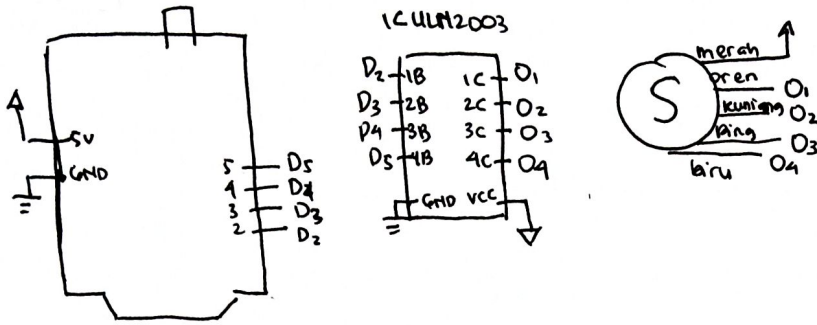 ICULN2003
5V
GND
5 D5
4 D4
3 D3
2 D2
D2 1B 1C O1
D3 2B 2C O2
D4 3B 3C O3
D5 4B 4C O4
GND VCC
S
merah
oren O1
kuning O2
ping O3
biru O4